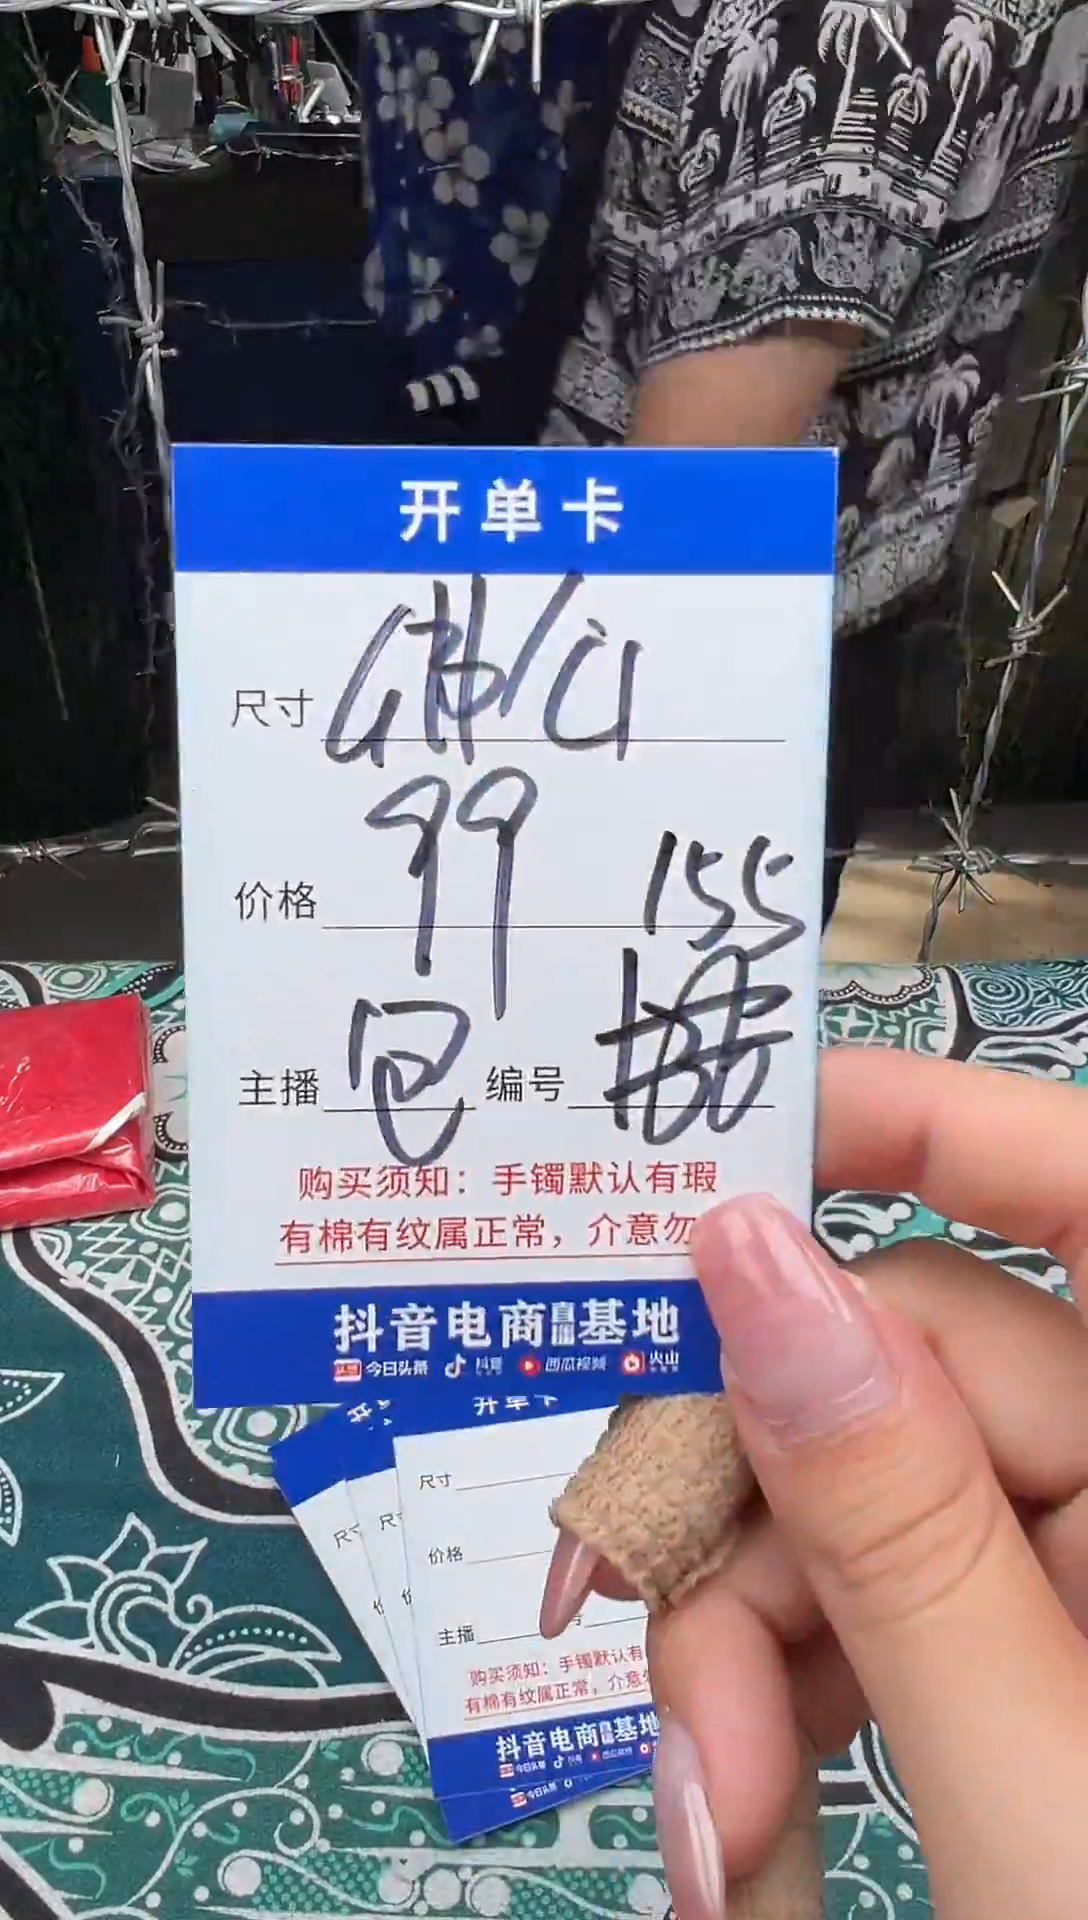 开单卡
尺寸 佛/山
价格 99
155
主播 包 编号
购买须知：手镯默认有瑕
有棉有纹属正常，介意勿
抖音电商直播基地
今日头条 抖音 西瓜视频 火山
开单卡
尺寸
价格
主播 号
购买须知：手镯默认有
有棉有纹属正常，介意
抖音电商直播基地
今日头条
尺寸
尺寸
今日头条